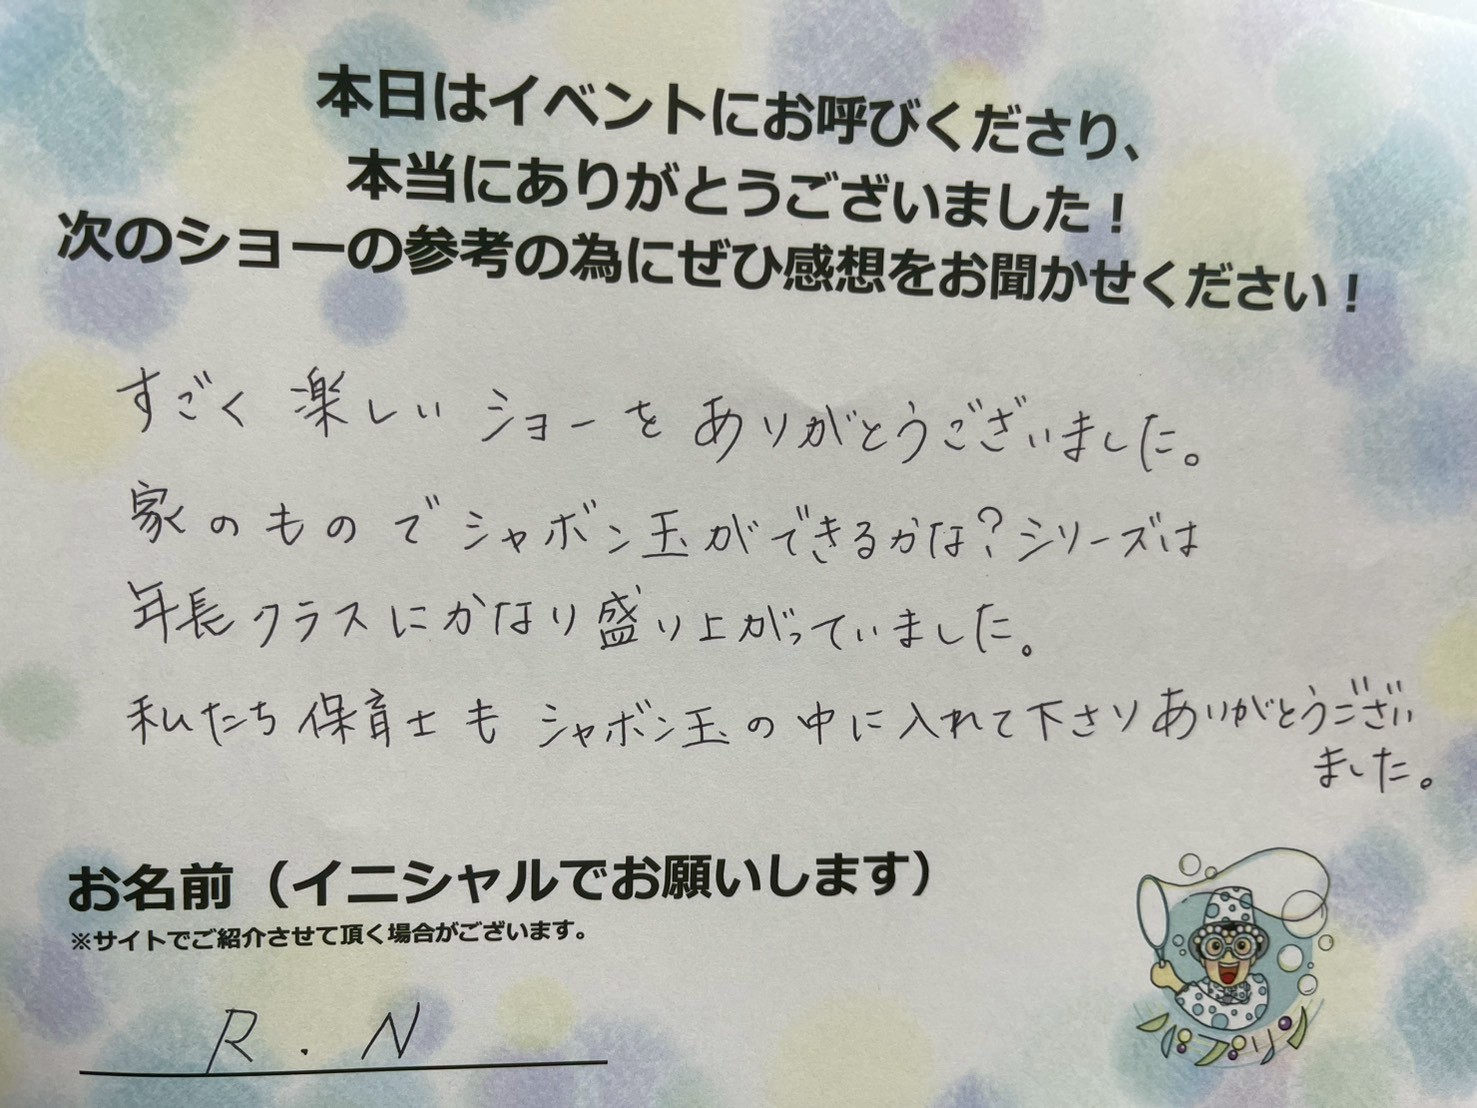 本日はイベントにお呼びくださり、
本当にありがとうございました！
次のショーの参考の為にぜひ感想をお聞かせください！
すごく楽しいショーをありがとうございました。
家のものでシャボン玉ができるかな？シリーズは
年長クラスにかなり盛り上がっていました。
私たち保育士もシャボン玉の中に入れて下さりありがとうござい
ました。
お名前（イニシャルでお願いします）
※サイトでご紹介させて頂く場合がございます。
R．N